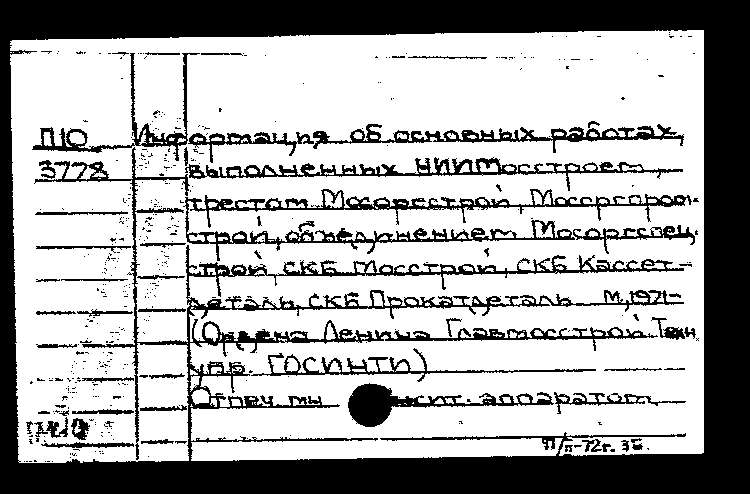 П10 Информация об основных работах,
3778 выполненных НИИМосстроем,
трестом Мосоргстрой, Мосоргпром-
строй, объединением Мосоргспец-
строй, СКБ Мосстрой, СКБ Кассет-
деталь, СКБ Прокатдеталь М, 1971-
(Ордена Ленина Главмосстрой. Техн.
упр. ГОСИНТИ)
Отпеч. мн. аппаратом
П/п-72г. 35.